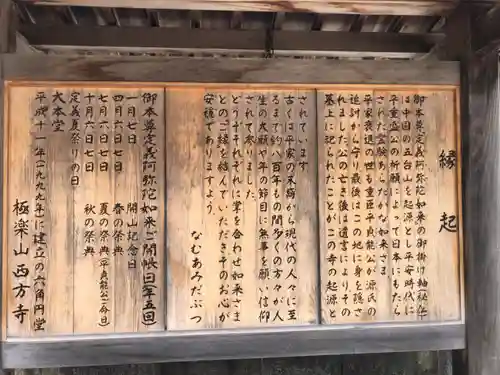 縁起
御本尊定義阿弥陀如来の御掛け軸(秘仏)
は中国の五台山を起源とし、平安時代に
平重盛公の祈願によって日本にもたら
された霊験あらたかな如来さま
平家衰退の世も重臣平貞能公が源氏の
追討から守り最後はこの地に身を隠さ
れました。公の亡き後は遺言によりその
墓上に祀られたことがこの寺の起源と
されています。
古くは平家の天病から現代の人々に至
るまで約八百年もの間多くの方々が人
生の大願や年の節目に無事を願い信仰
されて来りました。
どうぞそれぞれに掌を合わせ如来さま
とのご縁を結んでいただきそのお心が
安穏でありますよう。
なむあみだぶつ
御本尊定義阿弥陀如来ご開帳日(年五回)
一月七日 開山記念日
四月六日七日 春の祭典
七月六日七日 夏の祭典(平貞能公ご命日)
十月六日七日 秋の祭典
定義夏祭りの日
大本堂
平成十一年(一九九九年)に建立の六角円堂
極楽山西方寺